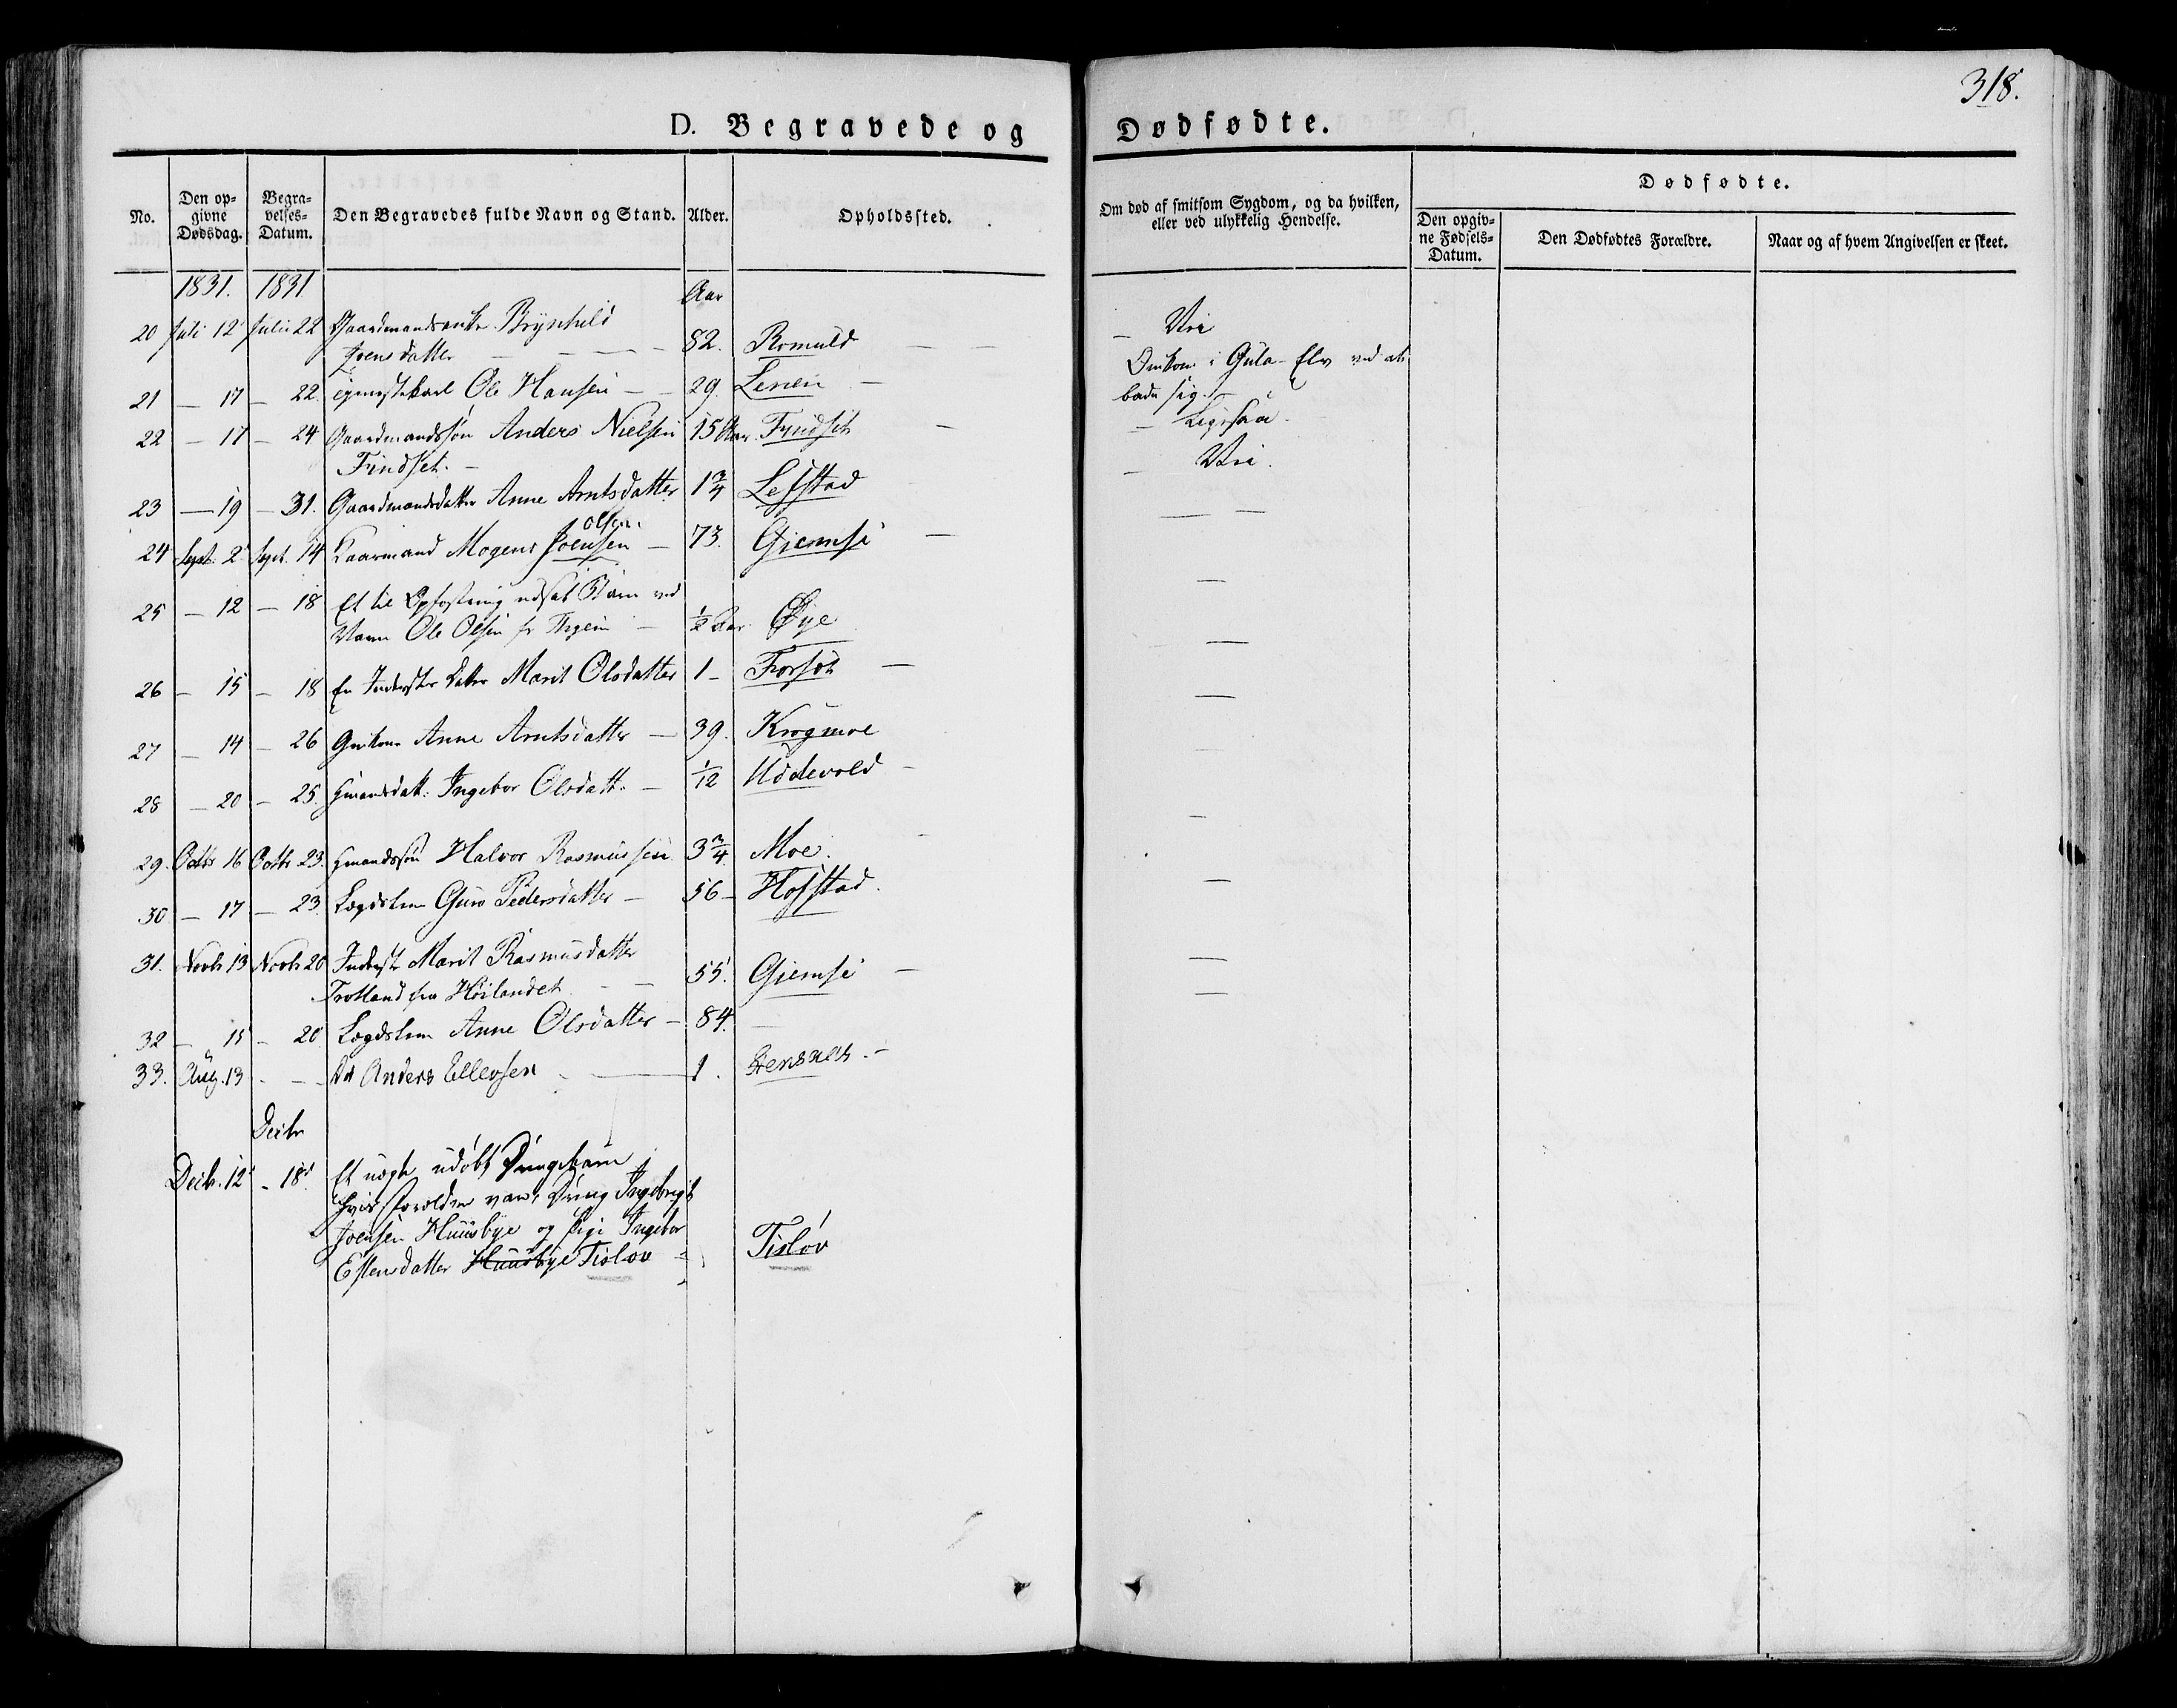 318.
D. Begravede og Dødfødte.
No.
Den op-
givne
Dødsdag.
Begra-
velses-
Datum.
Den Begravedes fulde Navn og Stand.
Alder.
Opholdssted.
Om død af smitsom Sygdom, og da hvilken,
eller ved ulykkelig Hendelse.
Dødfødte.
Den opgiv-
ne Fødsels-
Datum.
Den Dødfødtes Forældre.
Naar og af hvem Angivelsen er skeet.
1831. 1831 Aar
20 Juli 12 Julii 22 Gaardmandsenke Brynhild
Joensdatter — 82. Romuld — Nei
21 — 17 — 22. Ole Hansen — 29. Lenen — Omkom i Gula-Elv ved at
bade sig.
22 — 17 — 24 Gaardmandssøn Anders Nielsen 15 Aar. Fyndset — Ligesaa.
Findset. —
23 — 19 — 31. Gaardmandsdatter Anne Arntsdatter 1¾ Lefstad — Nei.
Olsen
24 Sept. 2 Sept. 14 Kaarmand Mogens Joensen — 73. Giemse —
25 — 12 — 18 Et til Opfostring udsat Barn ved
Navn Ole Olsen fr — ½ Aar. Øye
26 — 15 — 18 En Inderstes Datter Marit Olsdatter 1 — Forset —
27 — 14 — 26 Gaikone Anne Arntsdatter — 39. Krogmoe
28 — 20 — 25. Hmandsdatt. Ingebor Olsdatt. — 1/12 Uddevold —
29. Octbr 16 Octbr 23. Hmandssøn Halvor Rasmussen 3¾ Moe.
30 — 17 — 23. Lægdslem Guro Pedersdatter — 56 — Hofstad.
31. Novbr 13 Novbr 20 Inderst Marit Rasmusdatter
Trotland fra Höilandet — 55. Giemse —
32 — 15 — 20 Lægdslem Anne Olsdatter — 84. —
33. Aug. 13 - — Anders Ellevsen — 1.
Decbr
Decbr. 12 - 18 Et uægte udøbt Drengebarn
hvis Forældre vare, Dreng Ingebrigt
Joensen Huusbye og Pige Ingebor
Estensdatter Huusbye Tisløv — Tisløv